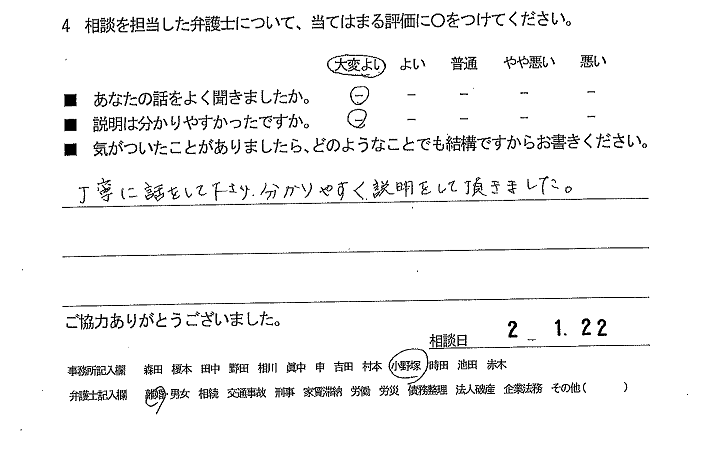 4 相談を担当した弁護士について、当てはまる評価に〇をつけてください。
大変よい よい 普通 やや悪い 悪い
■ あなたの話をよく聞きましたか。 − − − − −
■ 説明は分かりやすかったですか。 − − − − −
■ 気がついたことがありましたら、どのようなことでも結構ですからお書きください。
丁寧に話をして下さり、分かりやすく説明をして頂きました。
ご協力ありがとうございました。
相談日 2 − 1.22
事務所記入欄 森田 榎本 田中 野田 相川 眞中 申 吉田 村本 小野塚 時田 池田 赤木
弁護士記入欄 離婚・男女 相続 交通事故 刑事 家賃滞納 労働 労災 債務整理 法人破産 企業法務 その他( )